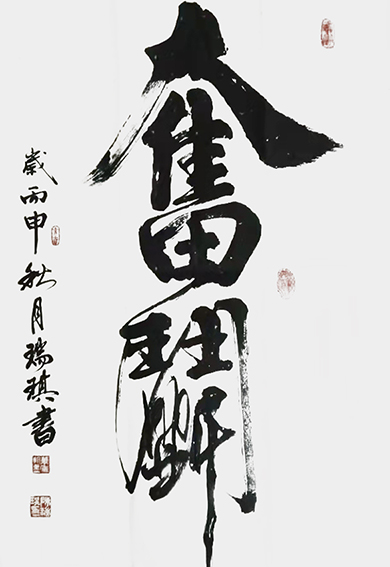 奮鬭
歲丙申秋月瑞琪書